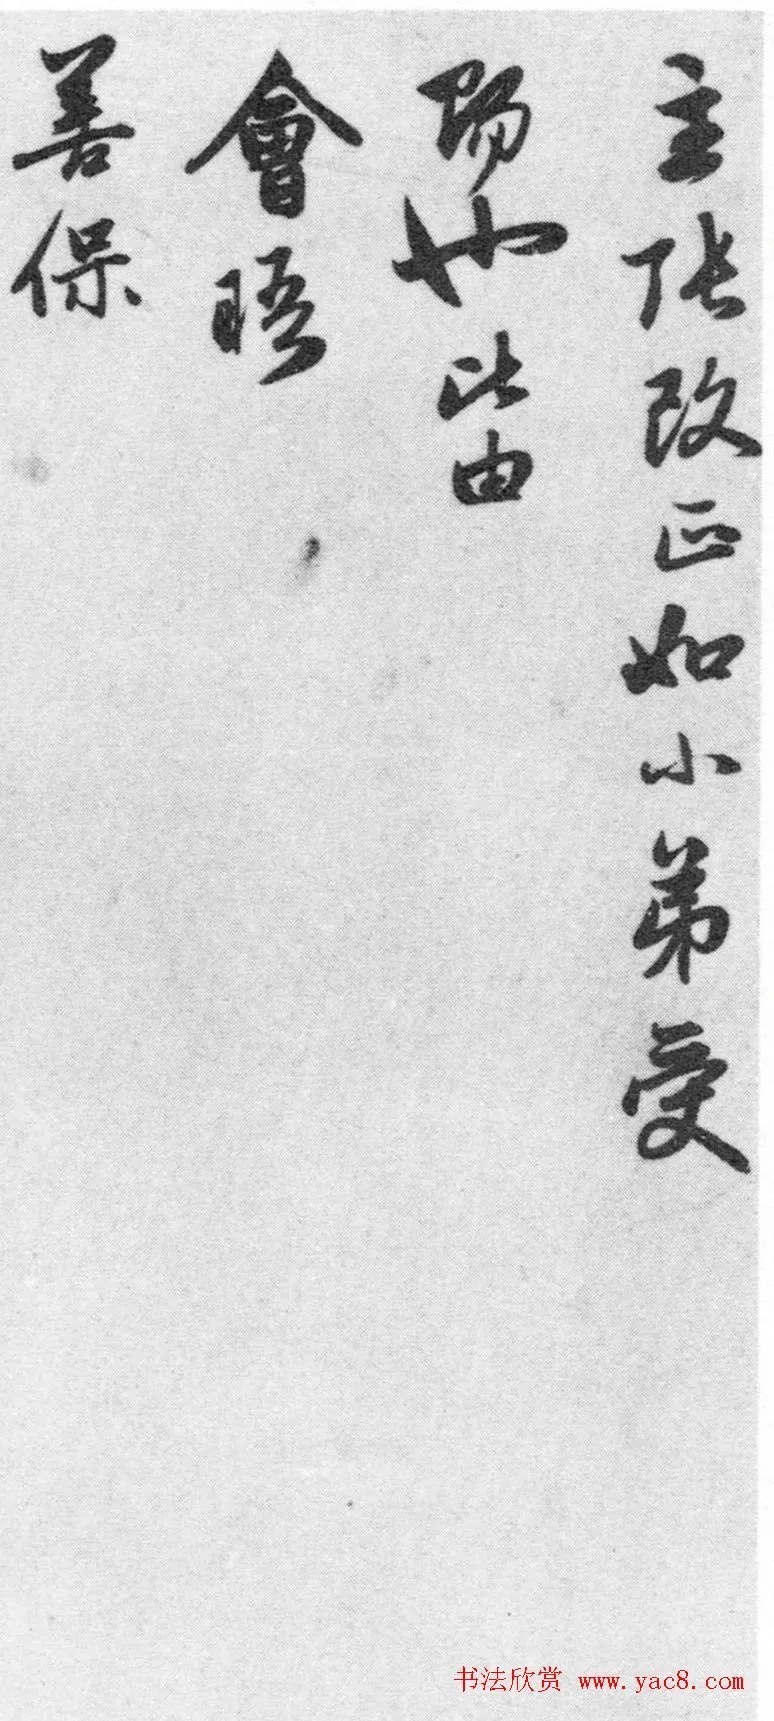 主張改正如小弟受
賜也比由
會晤
善保
书法欣赏 www.yac8.com